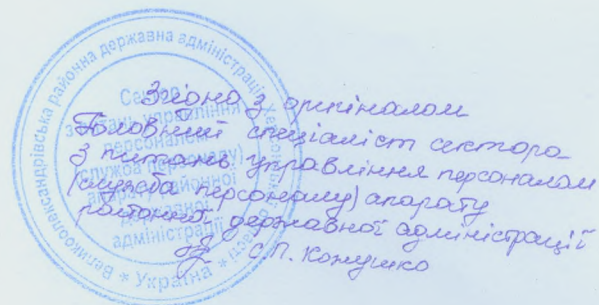 Великоолександрівська районна державна адміністрація Херсонської області
* Україна *
Сектор
з питань управління
персоналом
(служба персоналу)
апарату районної
державної
адміністрації
Згідно з оригіналом
Головний спеціаліст сектора
з питань управління персоналом
(служба персоналу) апарату
районної державної адміністрації
С.П.